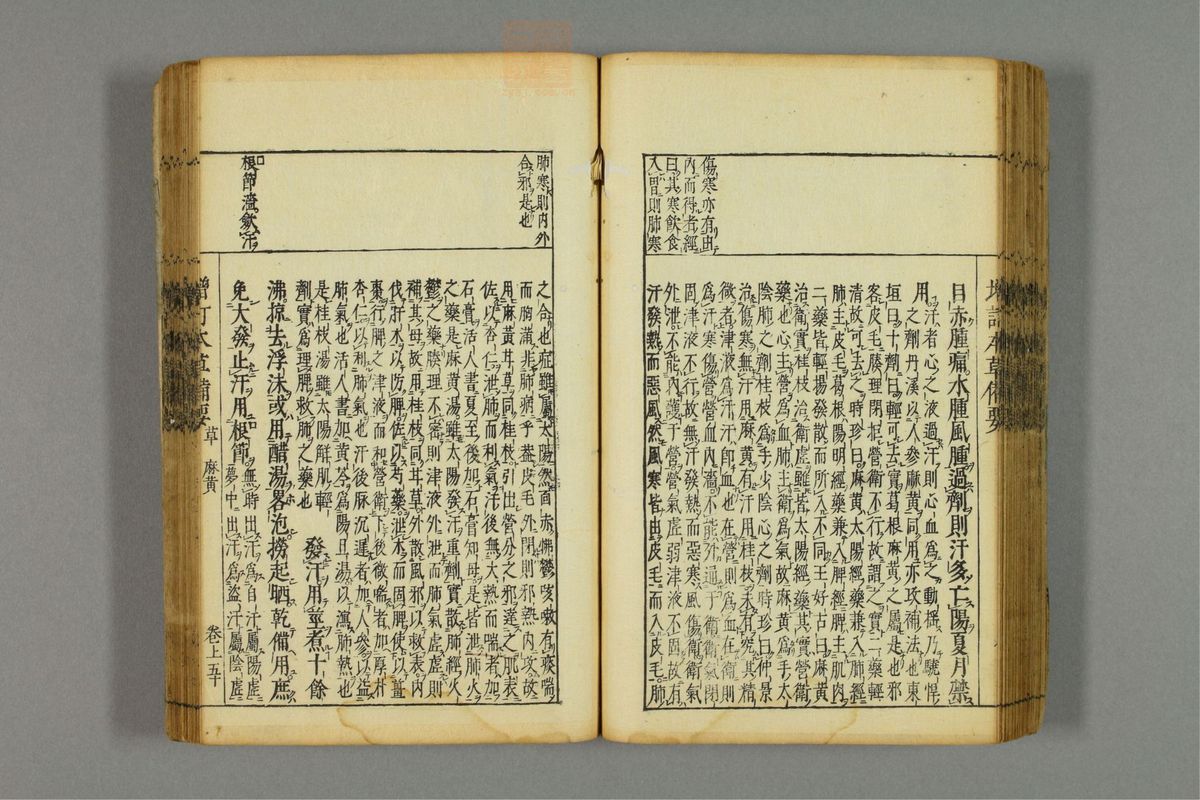 傷寒亦有由
內而得者經
曰其寒飲食
入胃則肺寒
目赤腫痛水腫風腫過劑則汗多亡陽夏月禁
用汗者心之液過汗則心血為之動搖乃驍悍
之劑丹溪以人參麻黃同用亦攻補法也東
垣曰十劑曰輕可去實葛根麻黃之屬是也邪
客皮毛腠理閉拒營衛不行故謂之實二藥輕
清故可去之時珍曰麻黃太陽經藥兼入肺經
肺主皮毛葛根陽明經藥兼入脾經脾主肌肉
二藥皆輕揚發散而所入不同王好古曰麻黃
治衛實桂枝治衛虛雖皆太陽經藥其實營衛
藥也心主營為血肺主衛為氣故麻黃為手太
陰肺之劑桂枝為手少陰心之劑時珍曰仲景
治傷寒無汗用麻黃有汗用桂枝未有究其精
微者津液為汗汗即血也在營則為血在衛則
為汗寒傷營營血內濇不能外通于衛衛氣閉
固津液不行故無汗發熱而惡寒風傷衛衛氣
外泄不能內護于營營氣虛弱津液不固故有
汗發熱而惡風然風寒皆由皮毛而入皮毛肺
肺寒則內外
合邪是也
根節濇斂汗
之合也症雖屬太陽然面赤怫鬱咳嗽有痰喘
而胸滿非肺病乎蓋皮毛外閉則邪熱內攻故
用麻黃甘草同桂枝引出營分之邪達之肌表
佐以杏仁泄肺而利氣汗後無大熱而喘者加
石膏活人書夏至後加石膏知母是皆泄肺火
之藥是麻黃湯雖太陽發汗重劑實散肺經火
鬱之藥腠理不密則津液外泄而肺氣虛虛則
補其母故用桂枝同甘草外散風邪以救表內
伐肝木以防脾佐以芍藥泄木而固脾使以薑
棗行脾之津液而和營衛下後微喘者加厚朴
杏仁以利肺氣也汗後脈沉遲者加人參以益
肺氣也活人書加黃芩為陽旦湯以瀉肺熱也
是桂枝湯雖太陽解肌輕
劑實為理脾救肺之藥也
發汗用莖煮十餘
沸掠去浮沫或用醋湯略泡撈起晒乾備用庶
免大發止汗用根節無時出汗為自汗屬陽虛
夢中出汗為盜汗屬陰虛
增訂本草備要
草
麻黃
卷上五十